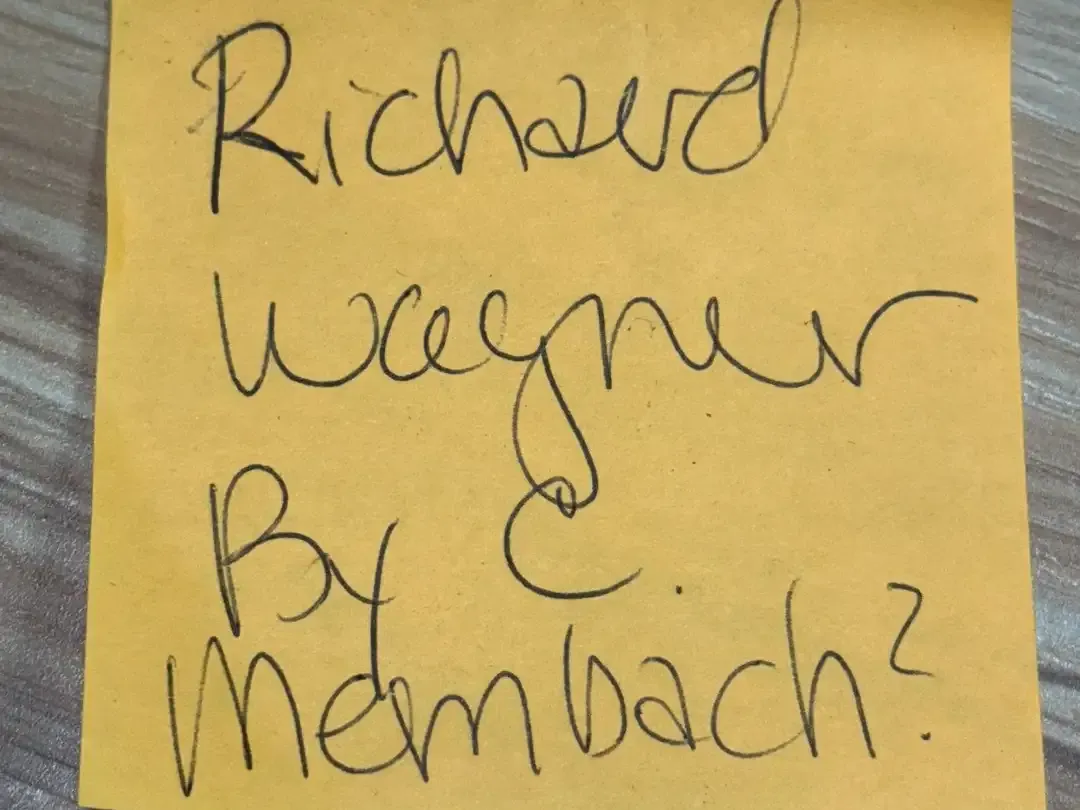 Richard
Wagner
By C.
Membach?